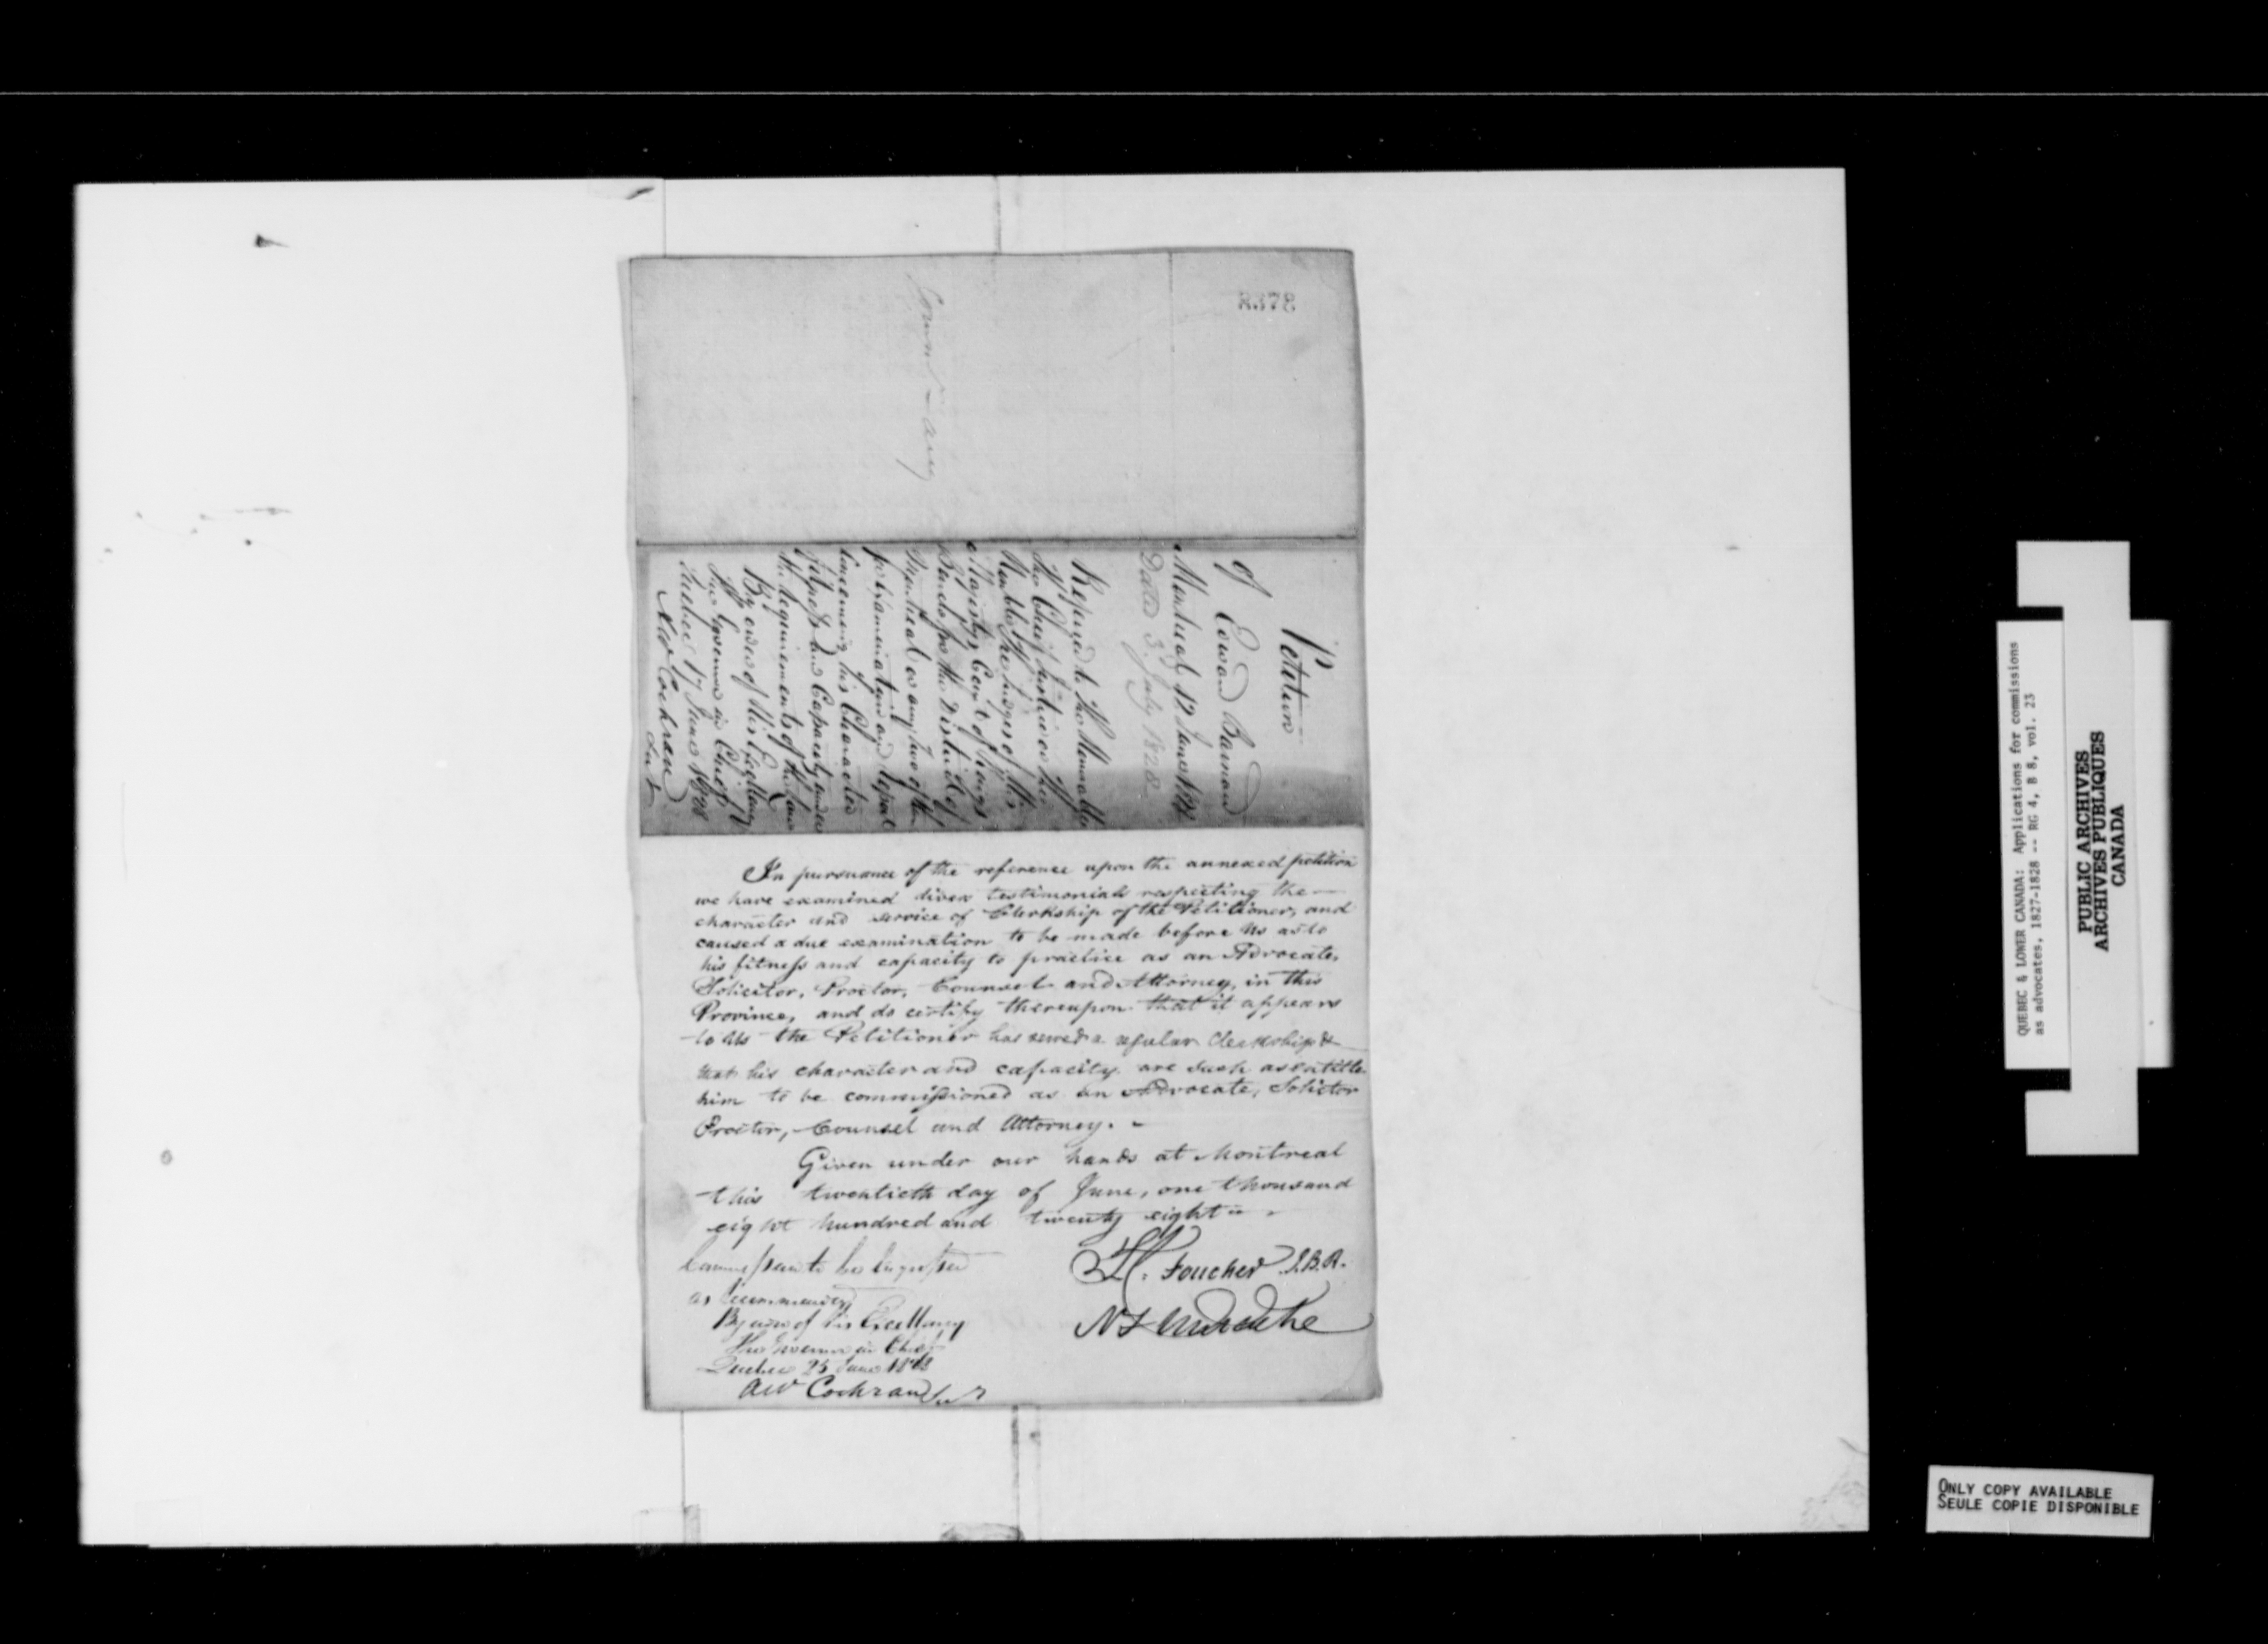 R378
Petition
of Edward Barnard
Montreal 12 June 1828
Dated 3 July 1828
Referred to the Honorable
the Chief Justice or the
Honble the Judges of His
Majesty's Court of Kings
Bench for the District of
Montreal or any two of them
for Examination and report
concerning his Character
fitness and Capacity under
the requirements of the Law
By order of His Excellency
The Governor in Chief
Quebec 17 June 1828
AW Cochran
Sec
In pursuance of the reference upon the annexed petition
we have examined divers testimonials respecting the
character and service of Clerkship of the Petitioner, and
caused a due examination to be made before us as to
his fitness and capacity to practice as an Advocate,
Solicitor, Proctor, Counsel and Attorney, in this
Province, and do certify thereupon that it appears
to us the Petitioner has served a regular Clerkship &
that his character and capacity are such as entitle
him to be commissioned as an Advocate, Solicitor
Proctor, Counsel and Attorney.
Given under our hands at Montreal
this twentieth day of June, one thousand
eight hundred and twenty eight
Foucher J.B.R.
Commission to be engrossed
as recommended
By order of His Excellency
The Governor in Chief
Quebec 25 June 1828
AW Cochran Sec
QUEBEC & LOWER CANADA: Applications for commissions
as advocates, 1827-1828 -- RG 4, B 8, vol. 23
PUBLIC ARCHIVES
ARCHIVES PUBLIQUES
CANADA
ONLY COPY AVAILABLE
SEULE COPIE DISPONIBLE